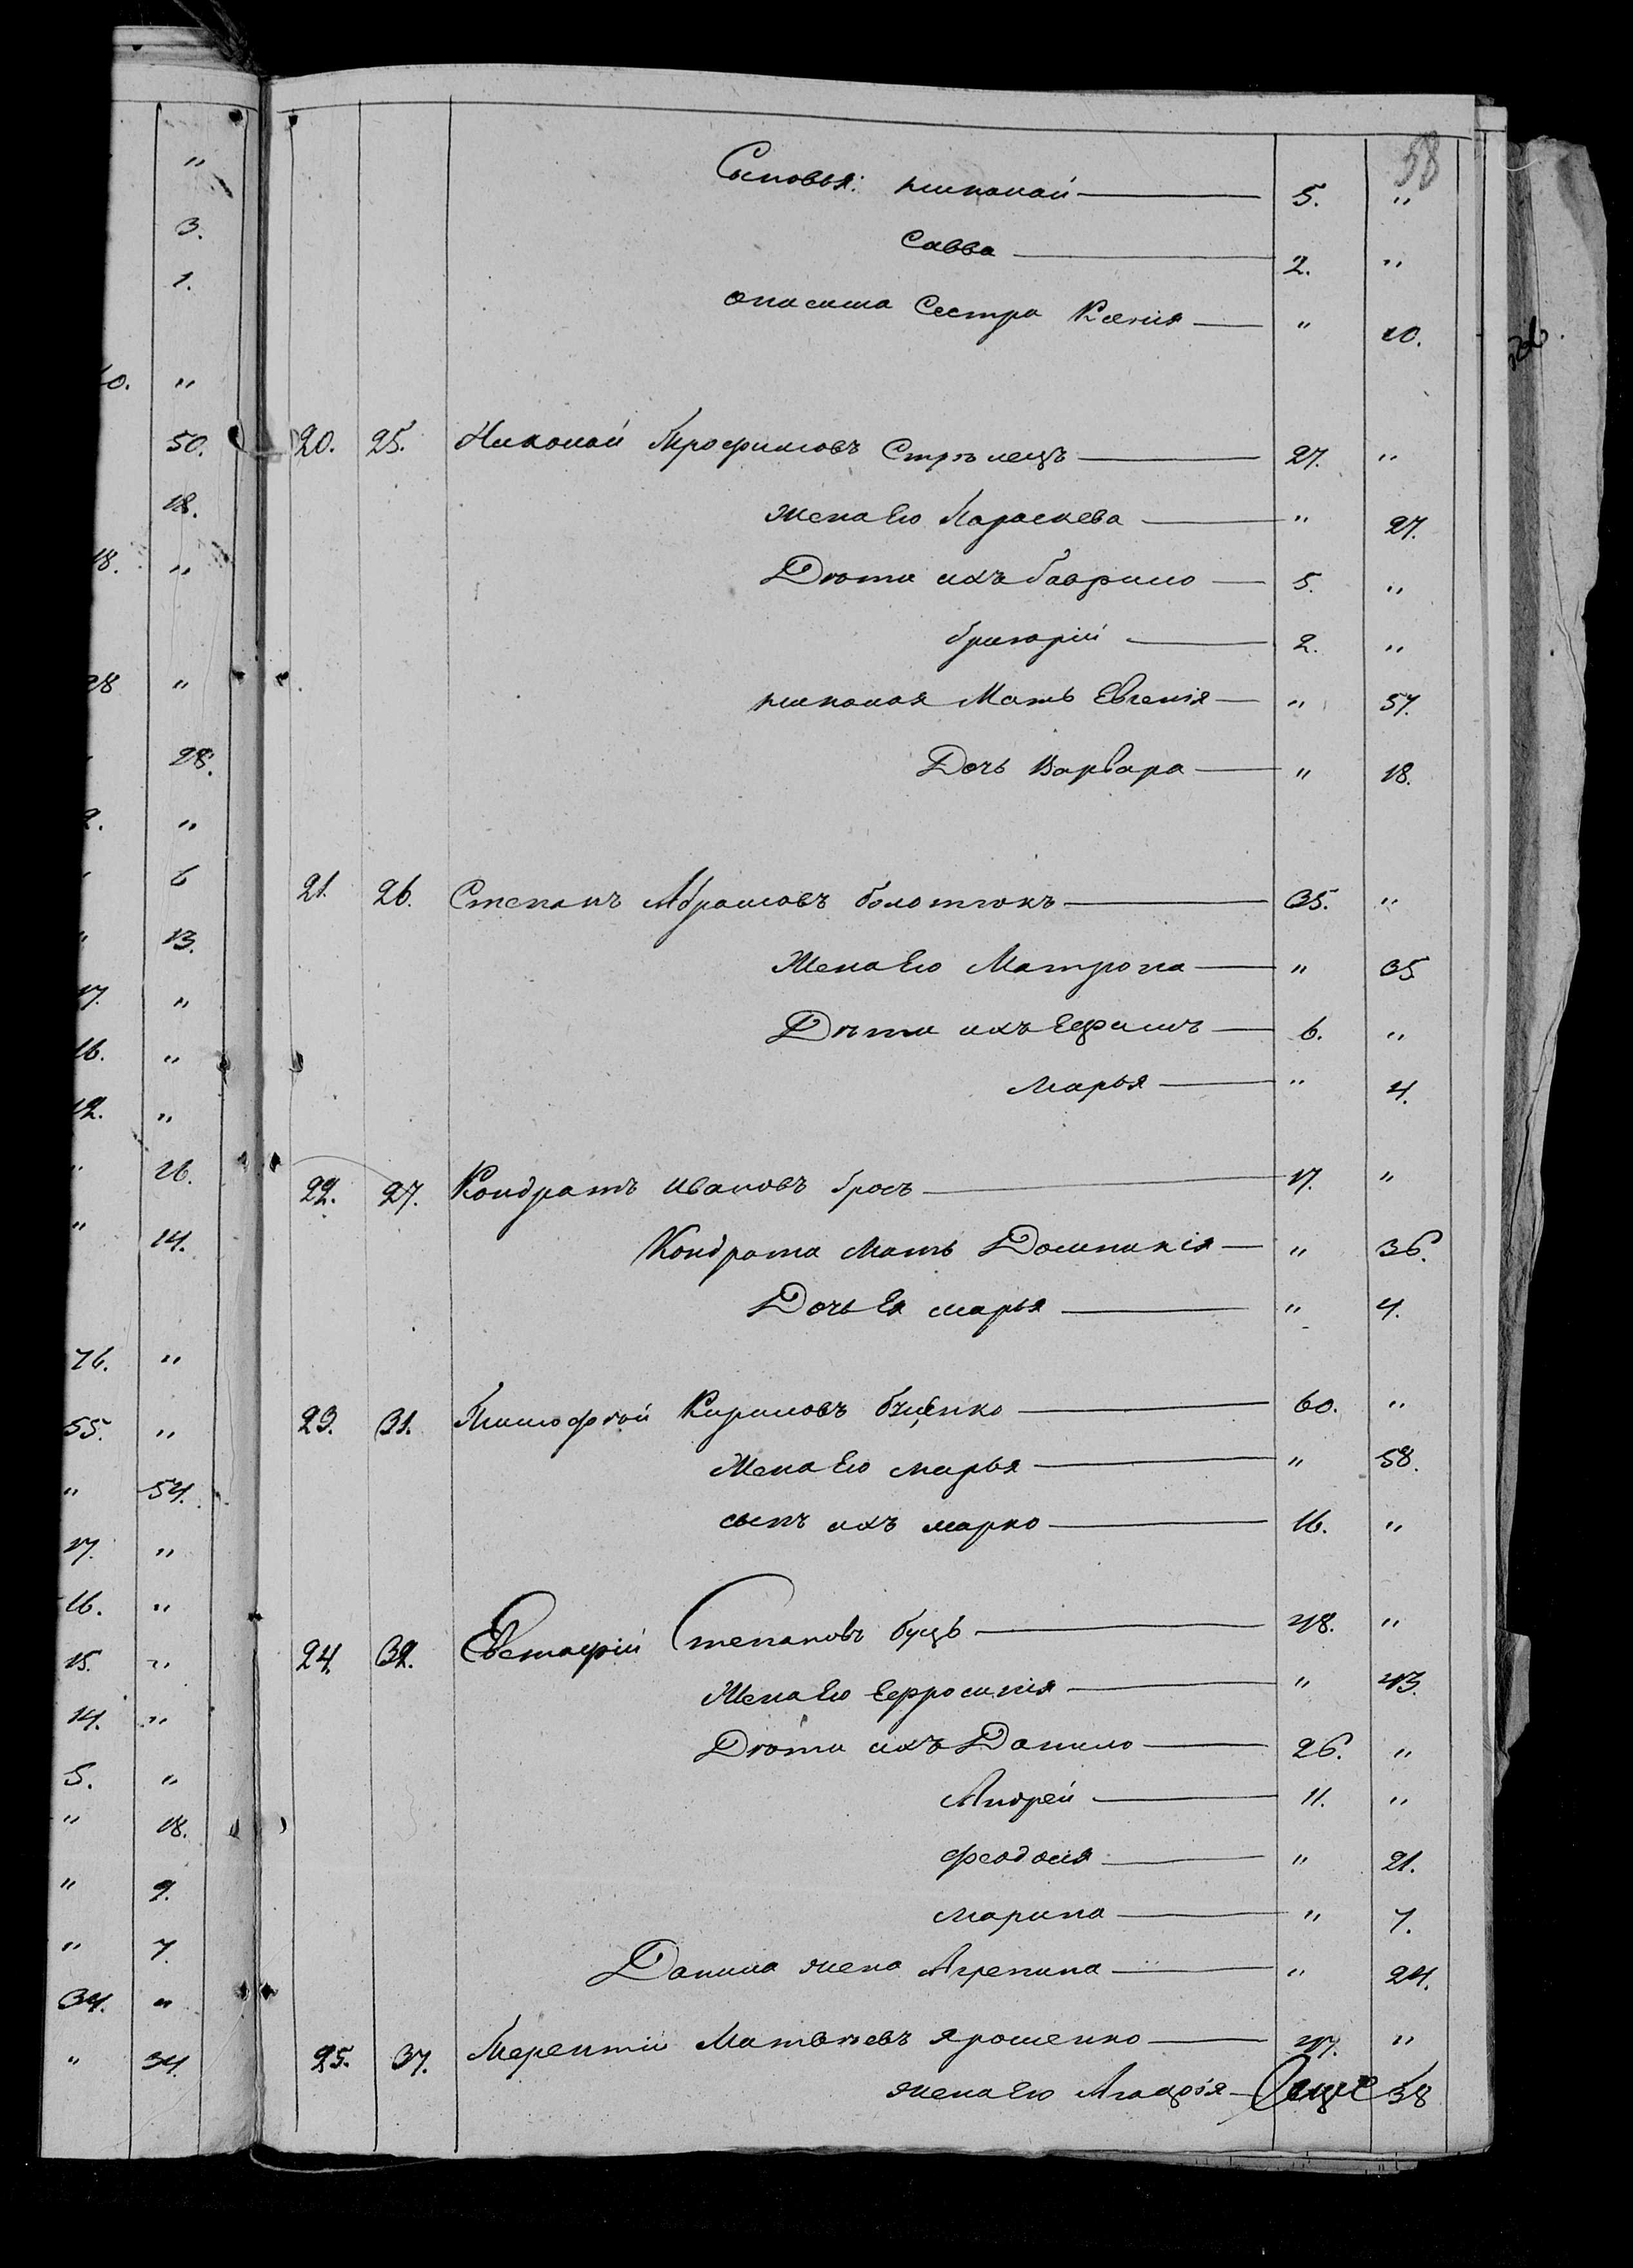 "
3.
1.
"
50.
18.
18. "
28 "
28.
"
6
13.
17. "
16. "
12. "
" 26.
" 14.
76. "
55. "
" 54.
17. "
16. "
15. "
14. "
5. "
" 18.
" 9.
" 7.
34. "
" 34.
58
Сыновья: николай 5. "
Савва 2. "
Сестра Ксенія " 20.
20. 25. Николай Трофимовъ Стрѣлецъ 27. "
жена Его Параскева " 27.
Дѣти ихъ Гаврило 5. "
Григорій 2. "
николая Мать Евгенія " 57.
Дочь Варвара " 18.
21. 26. Степанъ Абрамовъ 35. "
Жена Его Матрона " 35
Дѣти ихъ Ефимъ 6. "
Марья " 4.
22. 27. Кондратъ Ивановъ 17. "
Кондрата Мать Домникія " 36.
Дочь Ея марья " 4.
23. 31. Тимофѣй Кириловъ 60. "
Жена Его марья " 58.
сынъ ихъ марко 16. "
24. 32. Евстафій Степановъ буцъ 48. "
Жена Его Ефросинія " 43.
Дѣти ихъ Данило 26. "
Андрей 11. "
феодосія " 21.
марина " 7.
Данила жена Агрепина " 24.
25. 37. Терентій Матвѣевъ Ярошенко 47. "
жена Его Агафія 38